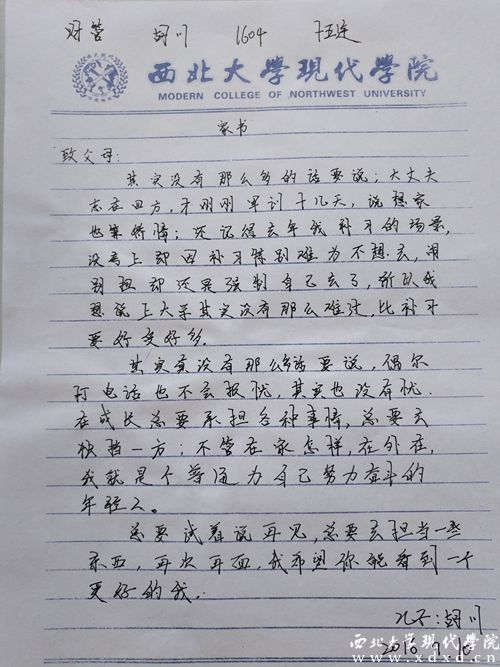 财管 胡川 1604 十五连
西北大学现代学院
MODERN COLLEGE OF NORTHWEST UNIVERSITY
家书
致父母：
其实没有那么多的话要说；大丈夫
志在四方，才刚刚军训十几天，说想家
也算矫情；还记得去年我补习的场景，
没考上却因补习特别难为不想去，闹
别扭却还是强制自己去了，所以我
想说上大学其实没有那么难过，比补习
要好受好多．
其实真没有那么多话要说，偶尔
打电话也不会报忧，其实也没有忧．
在成长总要承担各种事情，总要去
独挡一方；不管在家怎样，在外在，
我就是个普通为自己努力奋斗的
年轻人。
总要试着说再见，总要去担当一些
东西，再次再面，我希望你能看到一个
更好的我．
儿子：胡川
2016.9.10
西北大学现代学院
www.xdxd.cn